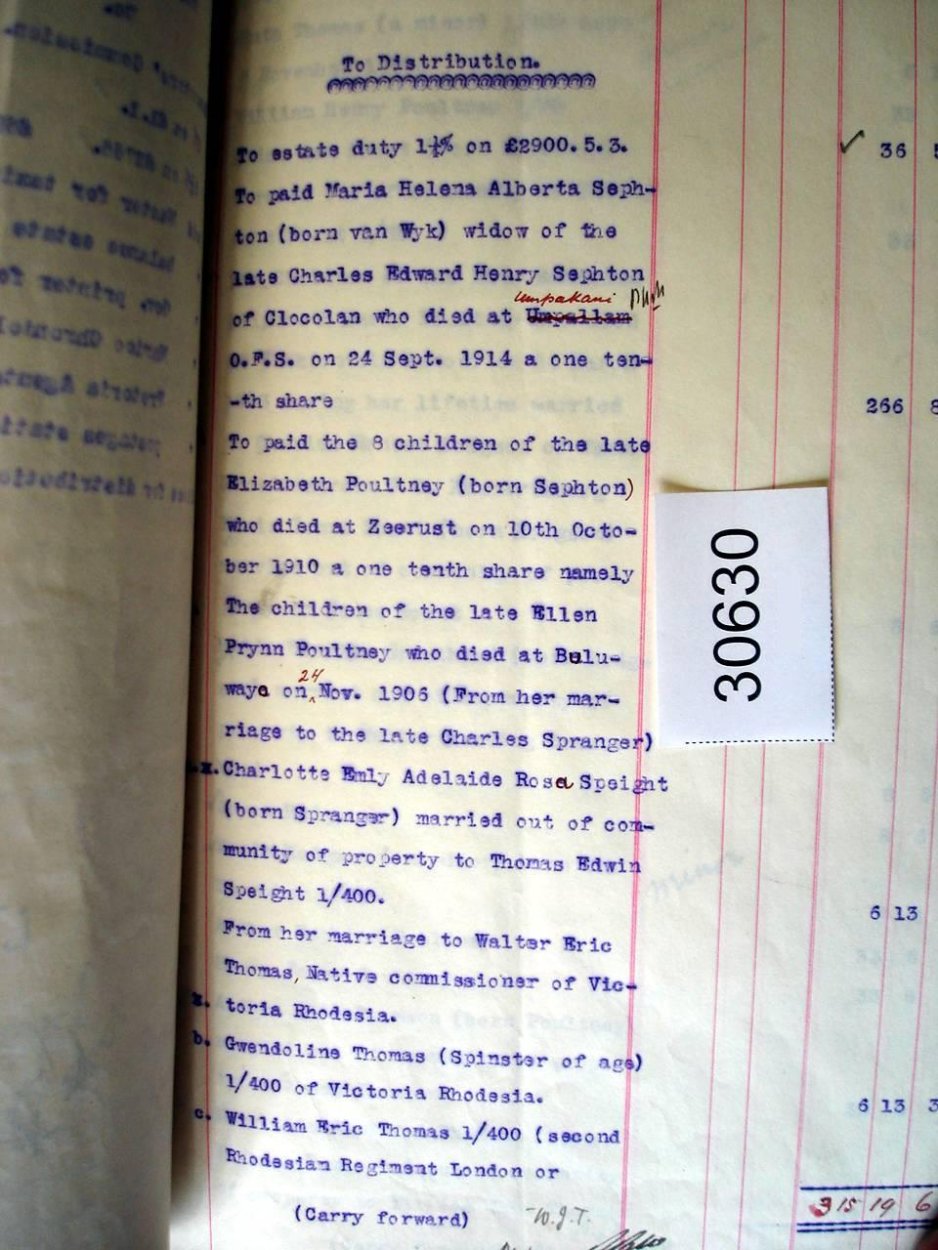 To Distribution.
To estate duty 1¼% on £2900. 5. 3. ✓ 36
To paid Maria Helena Alberta Seph-
ton (born van Wyk) widow of the
late Charles Edward Henry Sephton
Umpakani
of Clocolan who died at Umpallam
O.F.S. on 24 Sept. 1914 a one ten-
-th share 266 8
To paid the 8 children of the late
Elizabeth Poultney (born Sephton)
who died at Zeerust on 10th Octo-
ber 1910 a one tenth share namely
The children of the late Ellen
Prynn Poultney who died at Bulu-
24
waye on Nov. 1906 (From her mar-
riage to the late Charles Spranger)
Charlotte Emly Adelaide Rosa Speight
(born Spranger) married out of com-
munity of property to Thomas Edwin
Speight 1/400. 6 13
From her marriage to Walter Eric
Thomas, Native commissioner of Vic-
toria Rhodesia.
b. Gwendoline Thomas (Spinster of age)
1/400 of Victoria Rhodesia. 6 13 3
c. William Eric Thomas 1/400 (second
Rhodesian Regiment London or
(Carry forward) 315 19 6
W.J.T.
30630